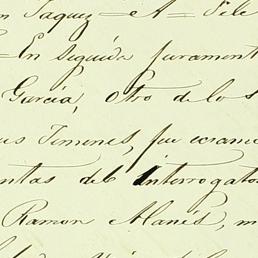 Jaquez = A =
= En seguida jurament
Garcia, otro de los
us Jimenes, fue examin
ntas del Interrogato
Ramon Alanis, m